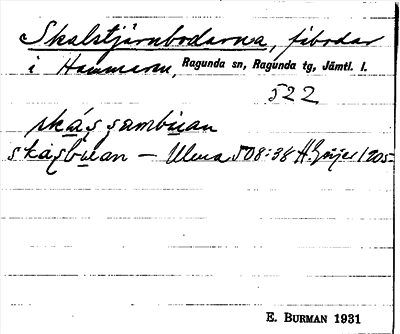 Skalstjärnbodarna, fäbodar
i Hammaren, Ragunda sn, Ragunda tg, Jämtl. l.
522
skássambuan
skásbuan – Ulma 508:38 H. Geijer 1905
E. BURMAN 1931